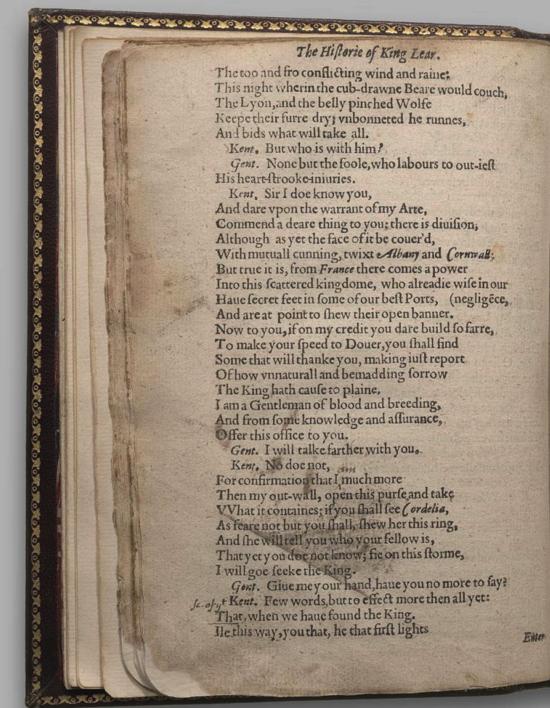 The Historie of King Lear.
The too and fro conflicting wind and raine:
This night wherin the cub-drawne Beare would couch,
The Lyon, and the belly pinched Wolfe
Keepe their furre dry; vnbonneted he runnes,
And bids what will take all.
Kent. But who is with him?
Gent. None but the foole, who labours to out-iest
His heart-strooke iniuries.
Kent. Sir I doe know you,
And dare vpon the warrant of my Arte,
Commend a deare thing to you; there is diuision,
Although as yet the face of it be couer'd,
With mutuall cunning, twixt Albany and Cornwall:
But true it is, from France there comes a power
Into this scattered kingdome, who alreadie wise in our
Haue secret feet in some of our best Ports, (negligēce,
And are at point to shew their open banner.
Now to you, if on my credit you dare build so farre,
To make your speed to Douer, you shall find
Some that will thanke you, making iust report
Of how vnnaturall and bemadding sorrow
The King hath cause to plaine,
I am a Gentleman of blood and breeding,
And from some knowledge and assurance,
Offer this office to you.
Gent. I will talke farther with you.
Kent. No doe not,
am
For confirmation that I much more
Then my out-wall, open this purse, and take
VVhat it containes; if you shall see Cordelia,
As feare not but you shall, shew her this ring,
And she will tell you who your fellow is,
That yet you doe not know; fie on this storme,
I will goe seeke the King.
Gent. Giue me your hand, haue you no more to say?
Kent. Few words, but to effect more then all yet:
That, when we haue found the King.
Ile this way, you that, he that first lights
Enter